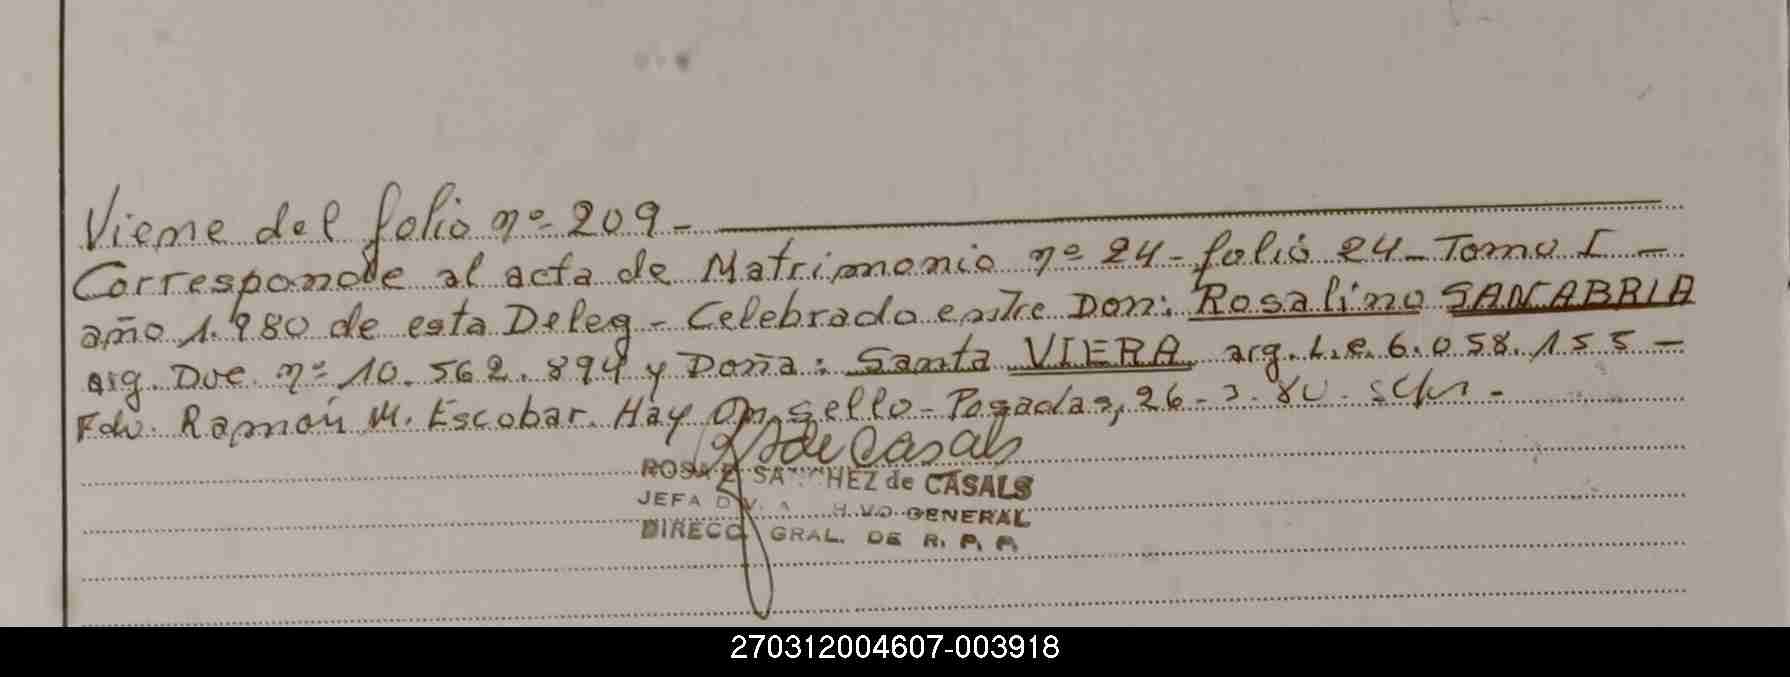 Viene del folio nº 209-
Corresponde al acta de Matrimonio nº 24- folio 24- Tomo I -
año 1.980 de esta Deleg - Celebrado entre Don: Rosalino SANCABRIA
arg. Due. nº 10.562.894 y Doña: Santa VIERA arg. L.e. 6.058.155 -
Fdo. Ramón M. Escobar. Hay un sello - Posadas, 26-3-80.
de Casals
ROSA E. SANCHEZ de CASALS
JEFA DIV. ARCHIVO GENERAL
DIRECC. GRAL. DE R. P. P.
270312004607-003918